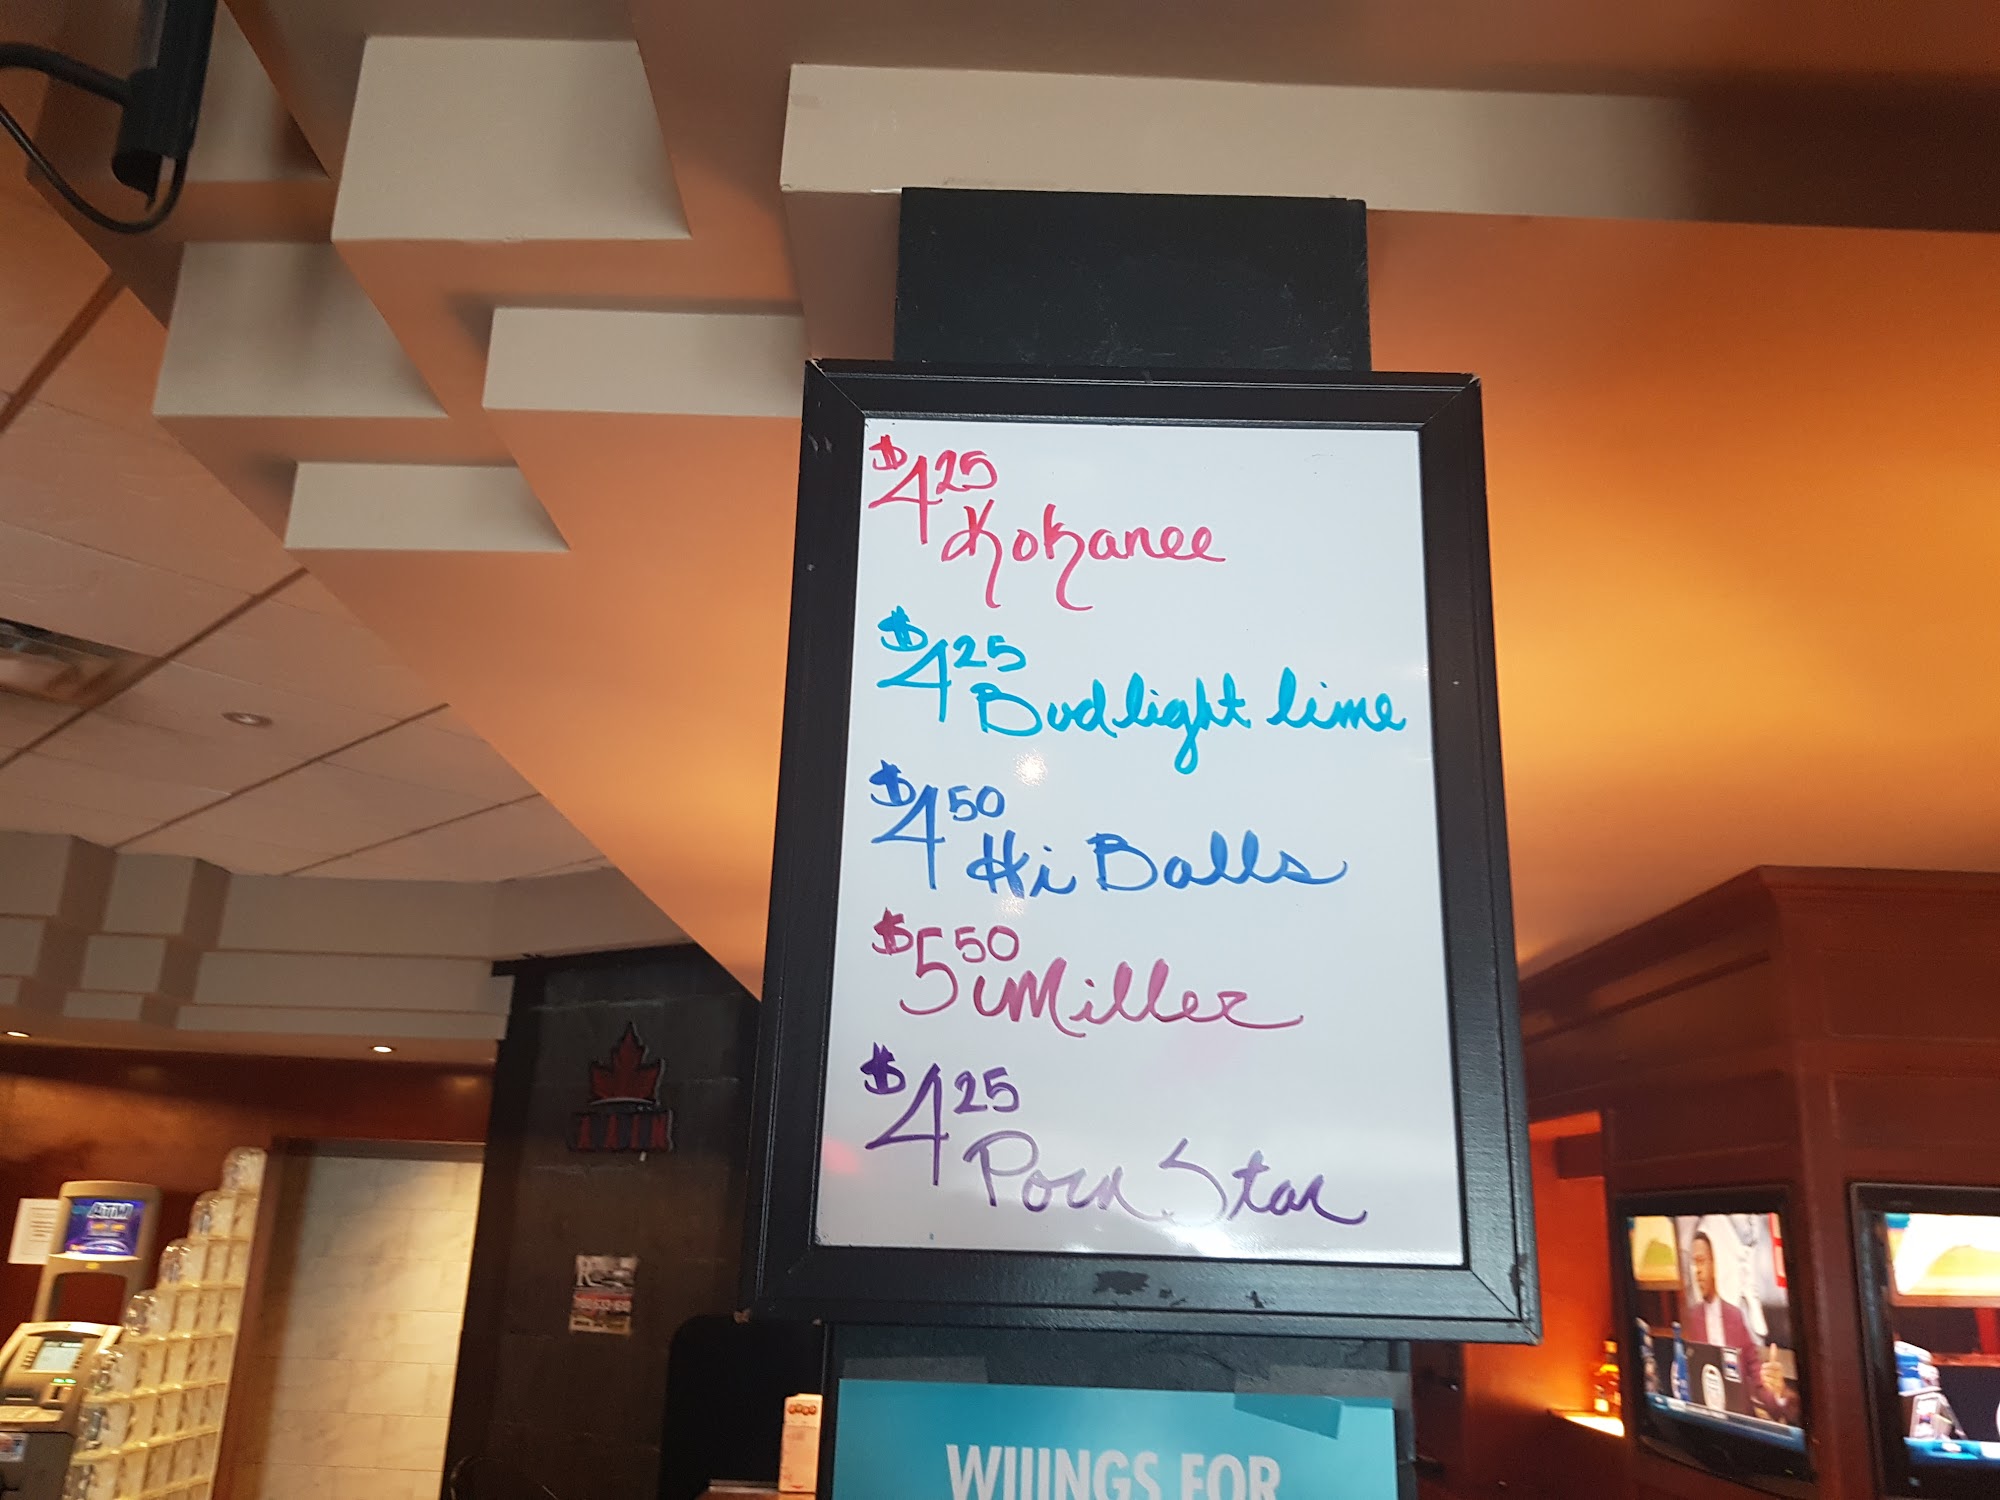 $4.25
Kokanee
$4.25
Bud light lime
$4.50
Hi Balls
$5.50
Miller
$4.25
Porn Star
ATM
WIIINGS FOR